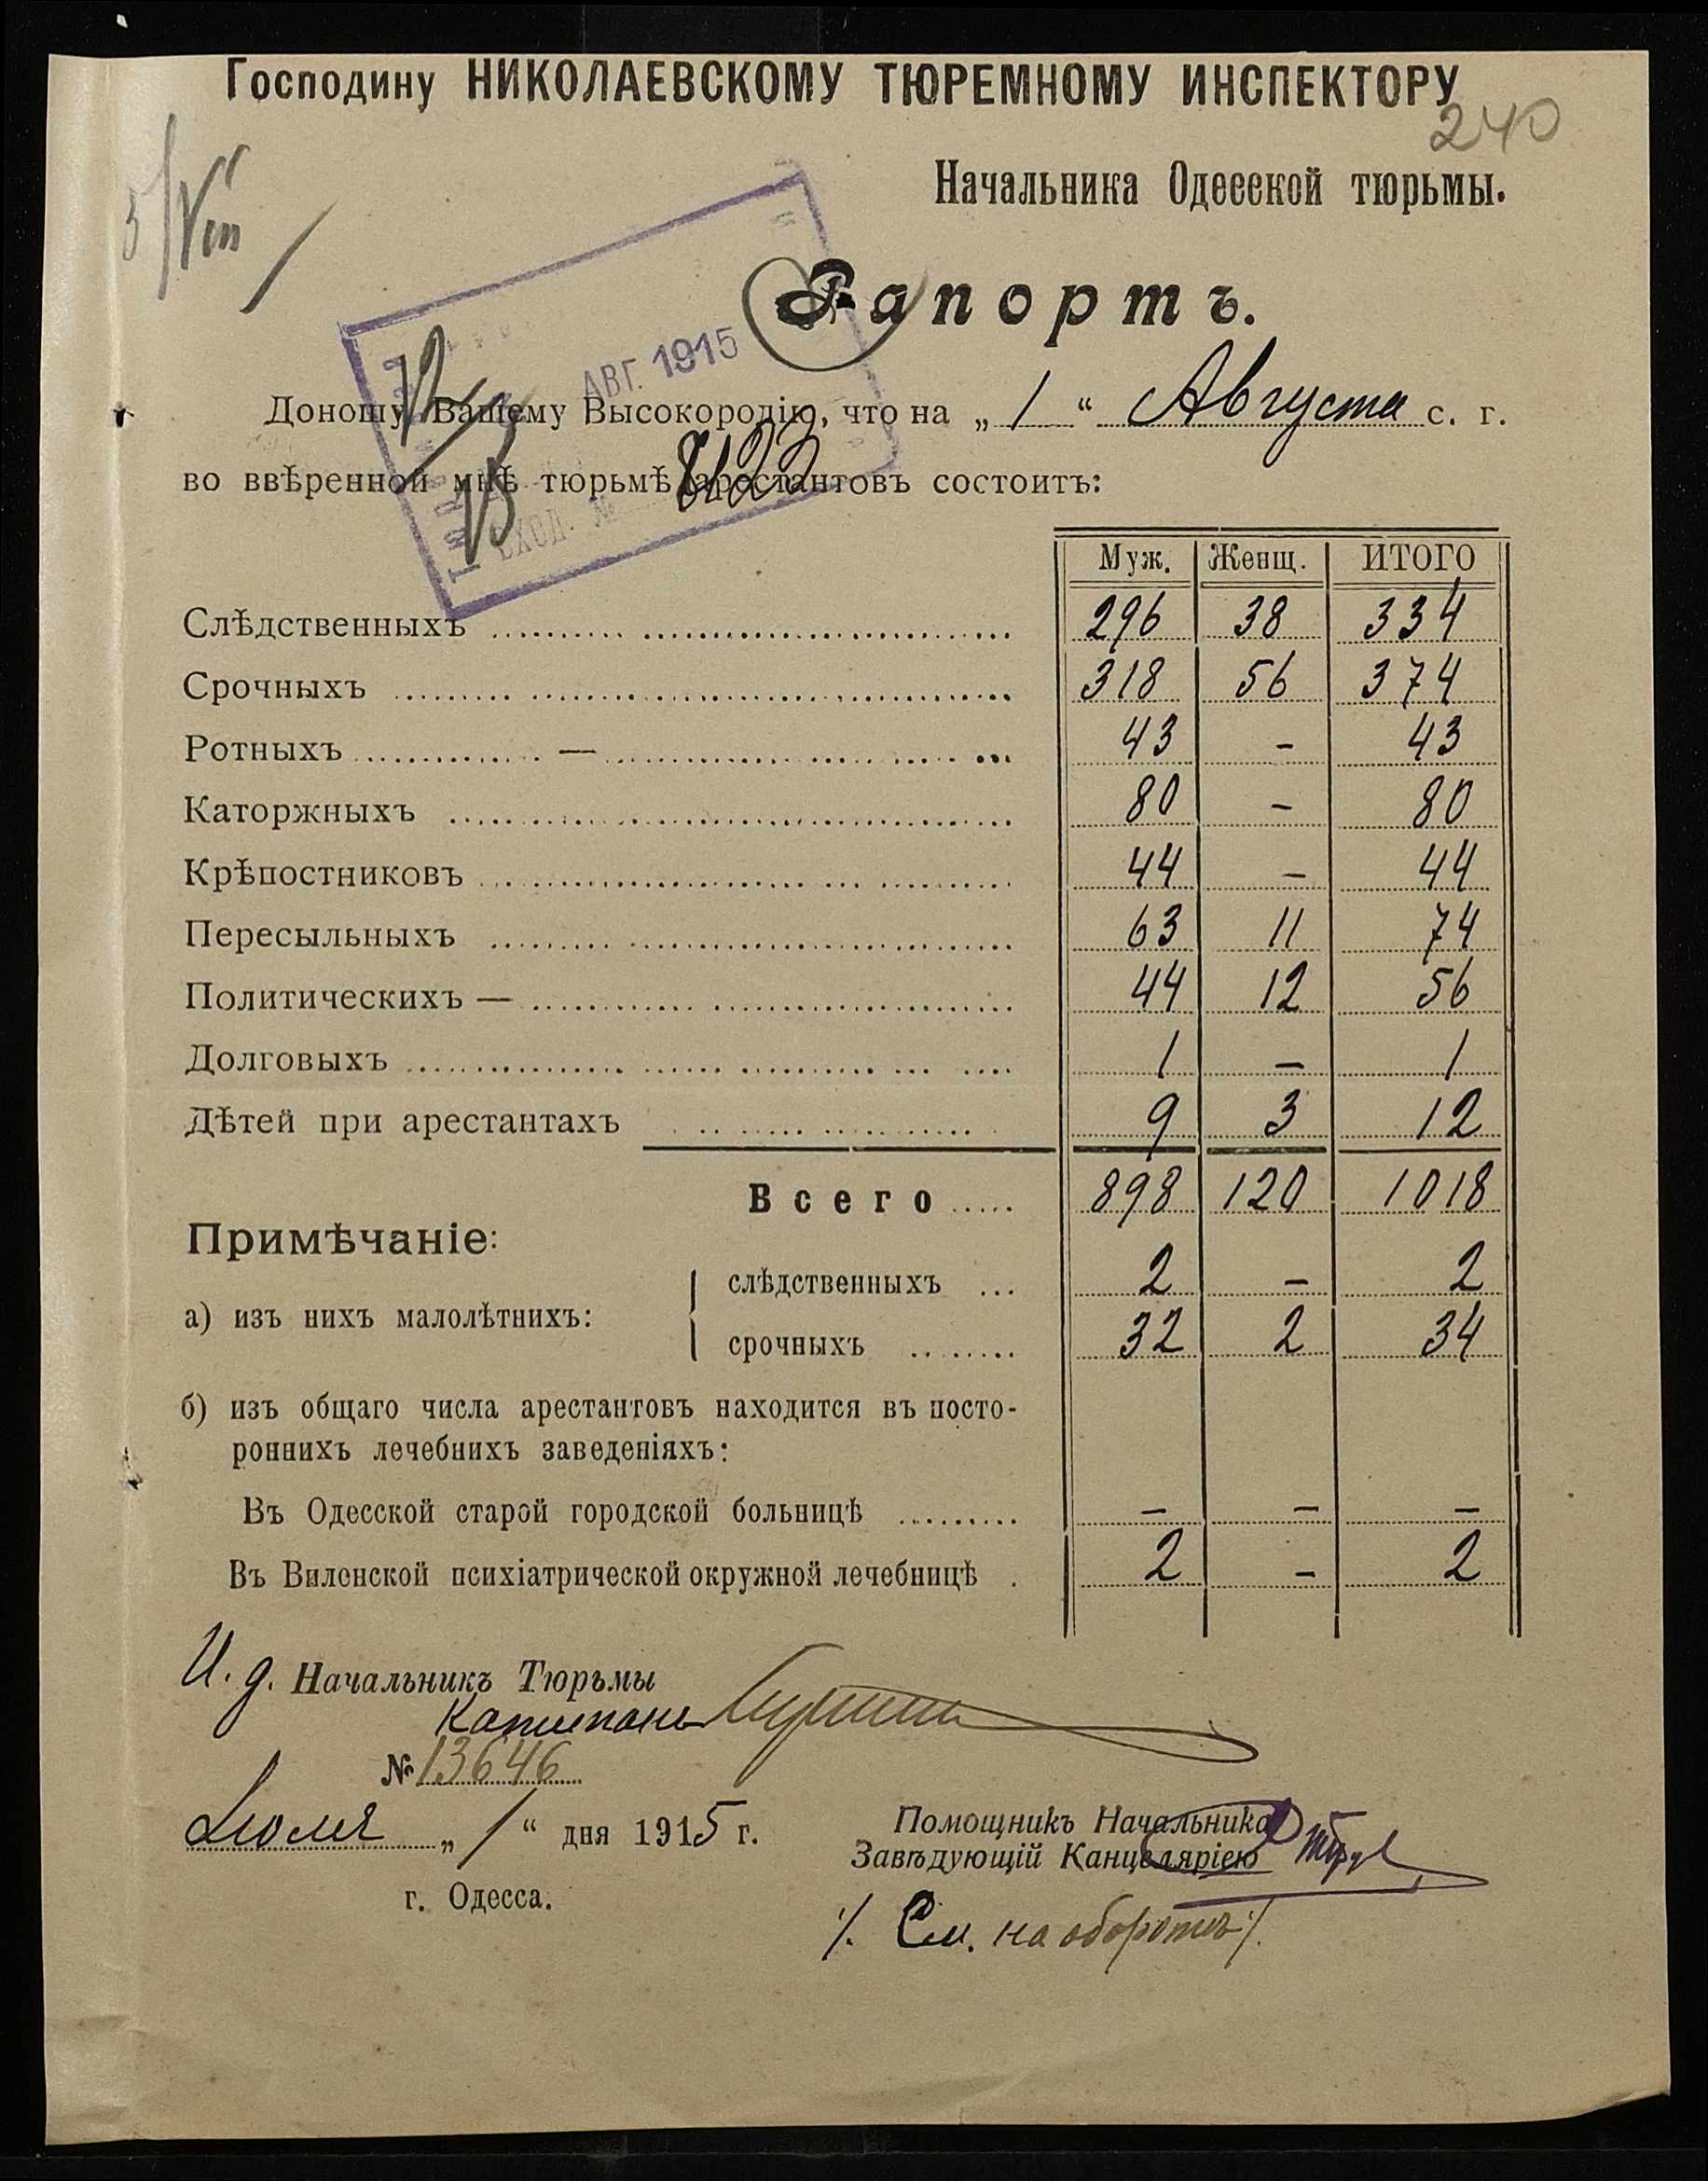 Господину НИКОЛАЕВСКОМУ ТЮРЕМНОМУ ИНСПЕКТОРУ
240
Начальника Одесской тюрьмы.
Рапортъ.
АВГ. 1915
Доношу Вашему Высокородію, что на „ 1 “ Августа с. г.
во ввѣренной мнѣ тюрьмѣ арестантовъ состоитъ:
ВХОД. №
Муж. Женщ. ИТОГО
Слѣдственныхъ 296 38 334
Срочныхъ 318 56 374
Ротныхъ — 43 - 43
Каторжныхъ 80 - 80
Крѣпостниковъ 44 - 44
Пересыльныхъ 63 11 74
Политическихъ — 44 12 56
Долговыхъ 1 - 1
Дѣтей при арестантахъ 9 3 12
Всего 898 120 1018
Примѣчаніе:
а) изъ нихъ малолѣтнихъ:
слѣдственныхъ 2 - 2
срочныхъ 32 2 34
б) изъ общаго числа арестантовъ находится въ посто-
роннихъ лечебнихъ заведеніяхъ:
Въ Одесской старой городской больницѣ - - -
Въ Виленской психіатрической окружной лечебницѣ 2 - 2
И. д. Начальникъ Тюрьмы
Капитанъ
№ 13646
Июля „ 1 “ дня 1915 г.
г. Одесса.
Помощникъ Начальника
Завѣдующій Канцеляріею
./. См. на оборотѣ ./.